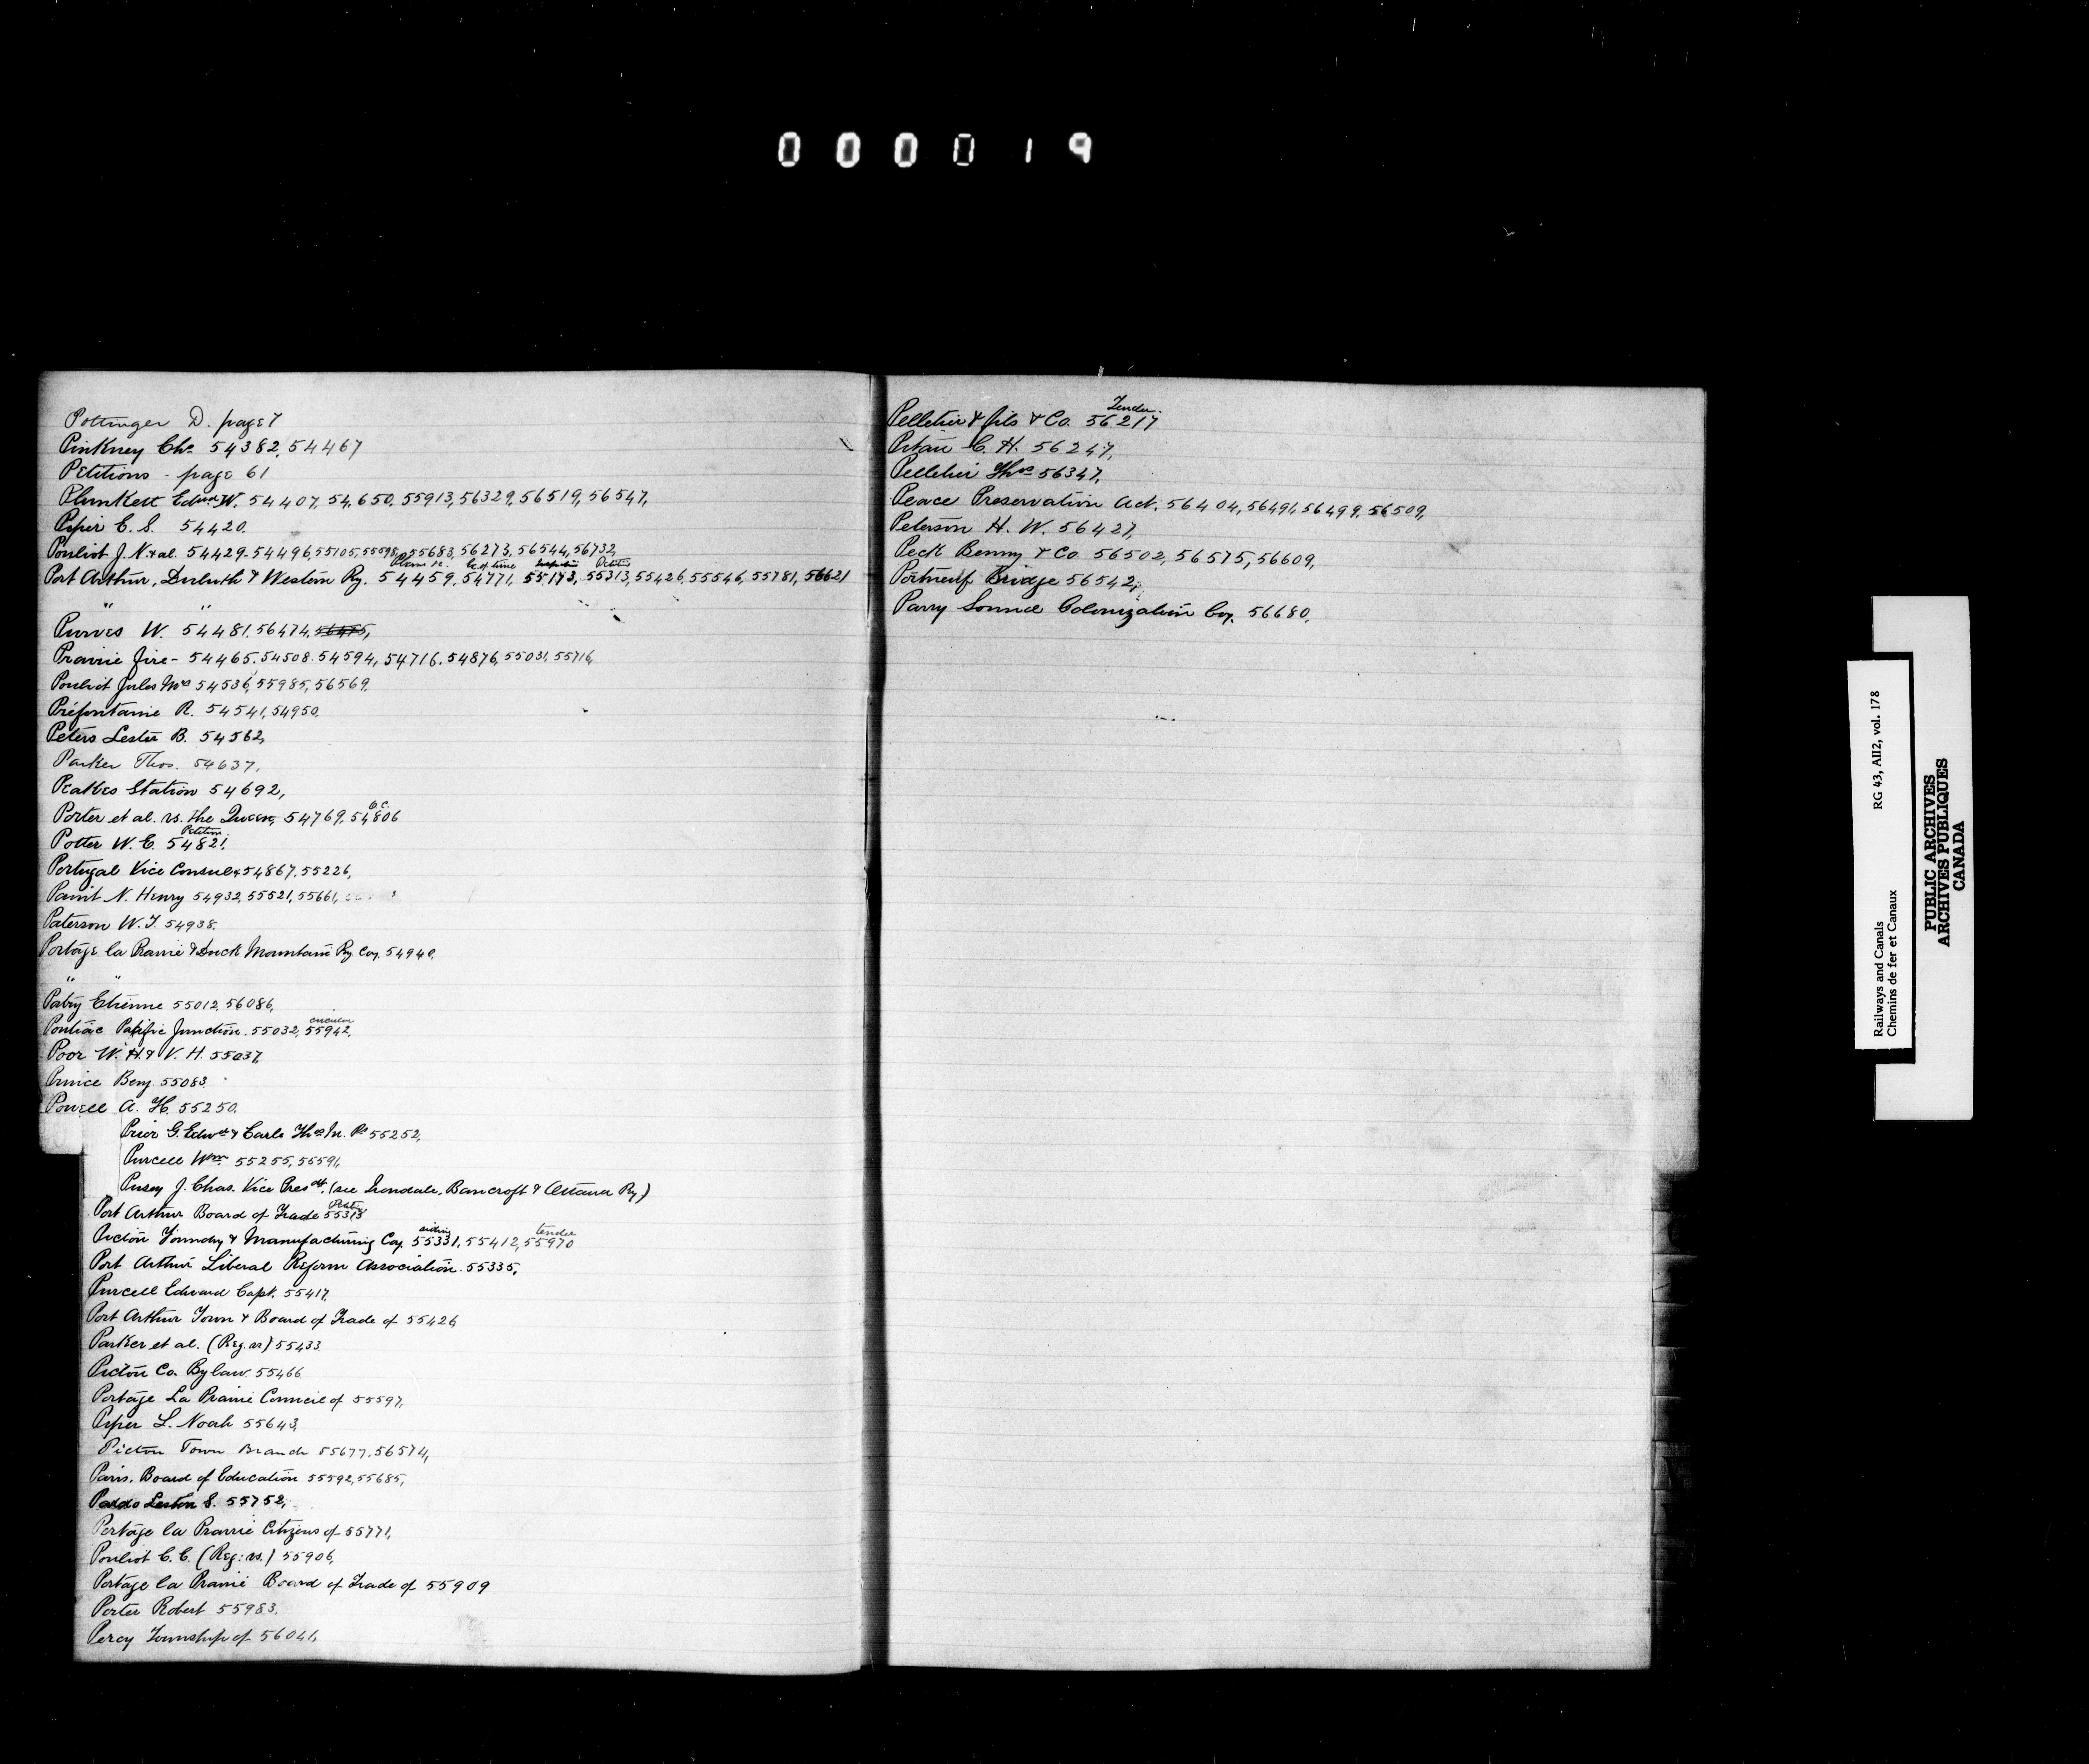 000019
Pottinger D. page 7
Pinkney Chs. 54382, 54467
Petitions - page 61
Plunkett Edwd W. 54407, 54650, 55913, 56329, 56519, 56547,
Piper E. S. 54420.
Pouliot J. N. & al. 54429. 54496, 55105, 55598, 55683, 56273, 56544, 56732,
Plans &c. Ex of time Inspection Petition
Port Arthur, Duluth & Western Ry. 54459, 54771, 55173, 55313, 55426, 55546, 55781, 56621
" "
Purves W. 54481, 56474, 56475,
Prairie fire - 54465. 54508. 54594, 54716. 54876, 55031, 55716,
Pouliot Jules Mrs 54536, 55985, 56569.
Préfontaine R. 54541, 54950.
Peters Lester B. 54562,
Parker Thos. 54637,
Peakes Station 54692,
O. C.
Porter et al. vs. the Queen, 54769, 54806
Petition
Potter W. E. 54821.
Portugal Vice Consul 54867, 55226,
Paint N. Henry 54932, 55521, 55661,
Paterson W. J. 54938.
Portage la Prairie & Duck Mountain Ry. Coy. 54940.
" "
Patry Etienne 55012, 56086,
circular
Pontiac Pacific Junction. 55032, 55942.
Poor W. H. & V. H. 55037,
Prince Benj. 55083.
Powell A. H. 55250.
Prior G. Edwd & Earle Thos M. Ps 55252,
Purcell Wm 55255, 55591,
Pusey J. Chas. Vice Presdt. (see Irondale, Bancroft & Ottawa Ry)
Petn
Port Arthur Board of Trade 55313
siding tender
Picton Foundry & Manufacturing Coy. 55331, 55412, 55970
Port Arthur Liberal Reform Association 55335,
Purcell Edward Capt. 55417,
Port Arthur Town & Board of Trade of 55426
Parker et al. (Reg. vs) 55433.
Picton Co. By law 55466.
Portage La Prairie Council of 55597,
Piper L. Noah 55643,
Picton Town Branch 55677, 56574,
Paris, Board of Education 55592, 55685,
Pardo S. 55752,
Portage la Prairie Citizens of 55771,
Pouliot C. E. (Reg: vs.) 55906,
Portage la Prairie Board of Trade of 55909
Porter Robert 55983.
Percy Township of 56041,
Tender.
Pelletier & fils & Co. 56217
Pitau C. H. 56247,
Pelletier Thos 56347,
Peace Preservation Act. 56404, 56491, 56499, 56509,
Peterson H. W. 56427,
Peck Benny & Co. 56502, 56575, 56609,
Portneuf Bridge 56542,
Parry Sound Colonization Coy. 56680.
Railways and Canals RG 43, AII2, vol. 178
Chemins de fer et Canaux
PUBLIC ARCHIVES
ARCHIVES PUBLIQUES
CANADA